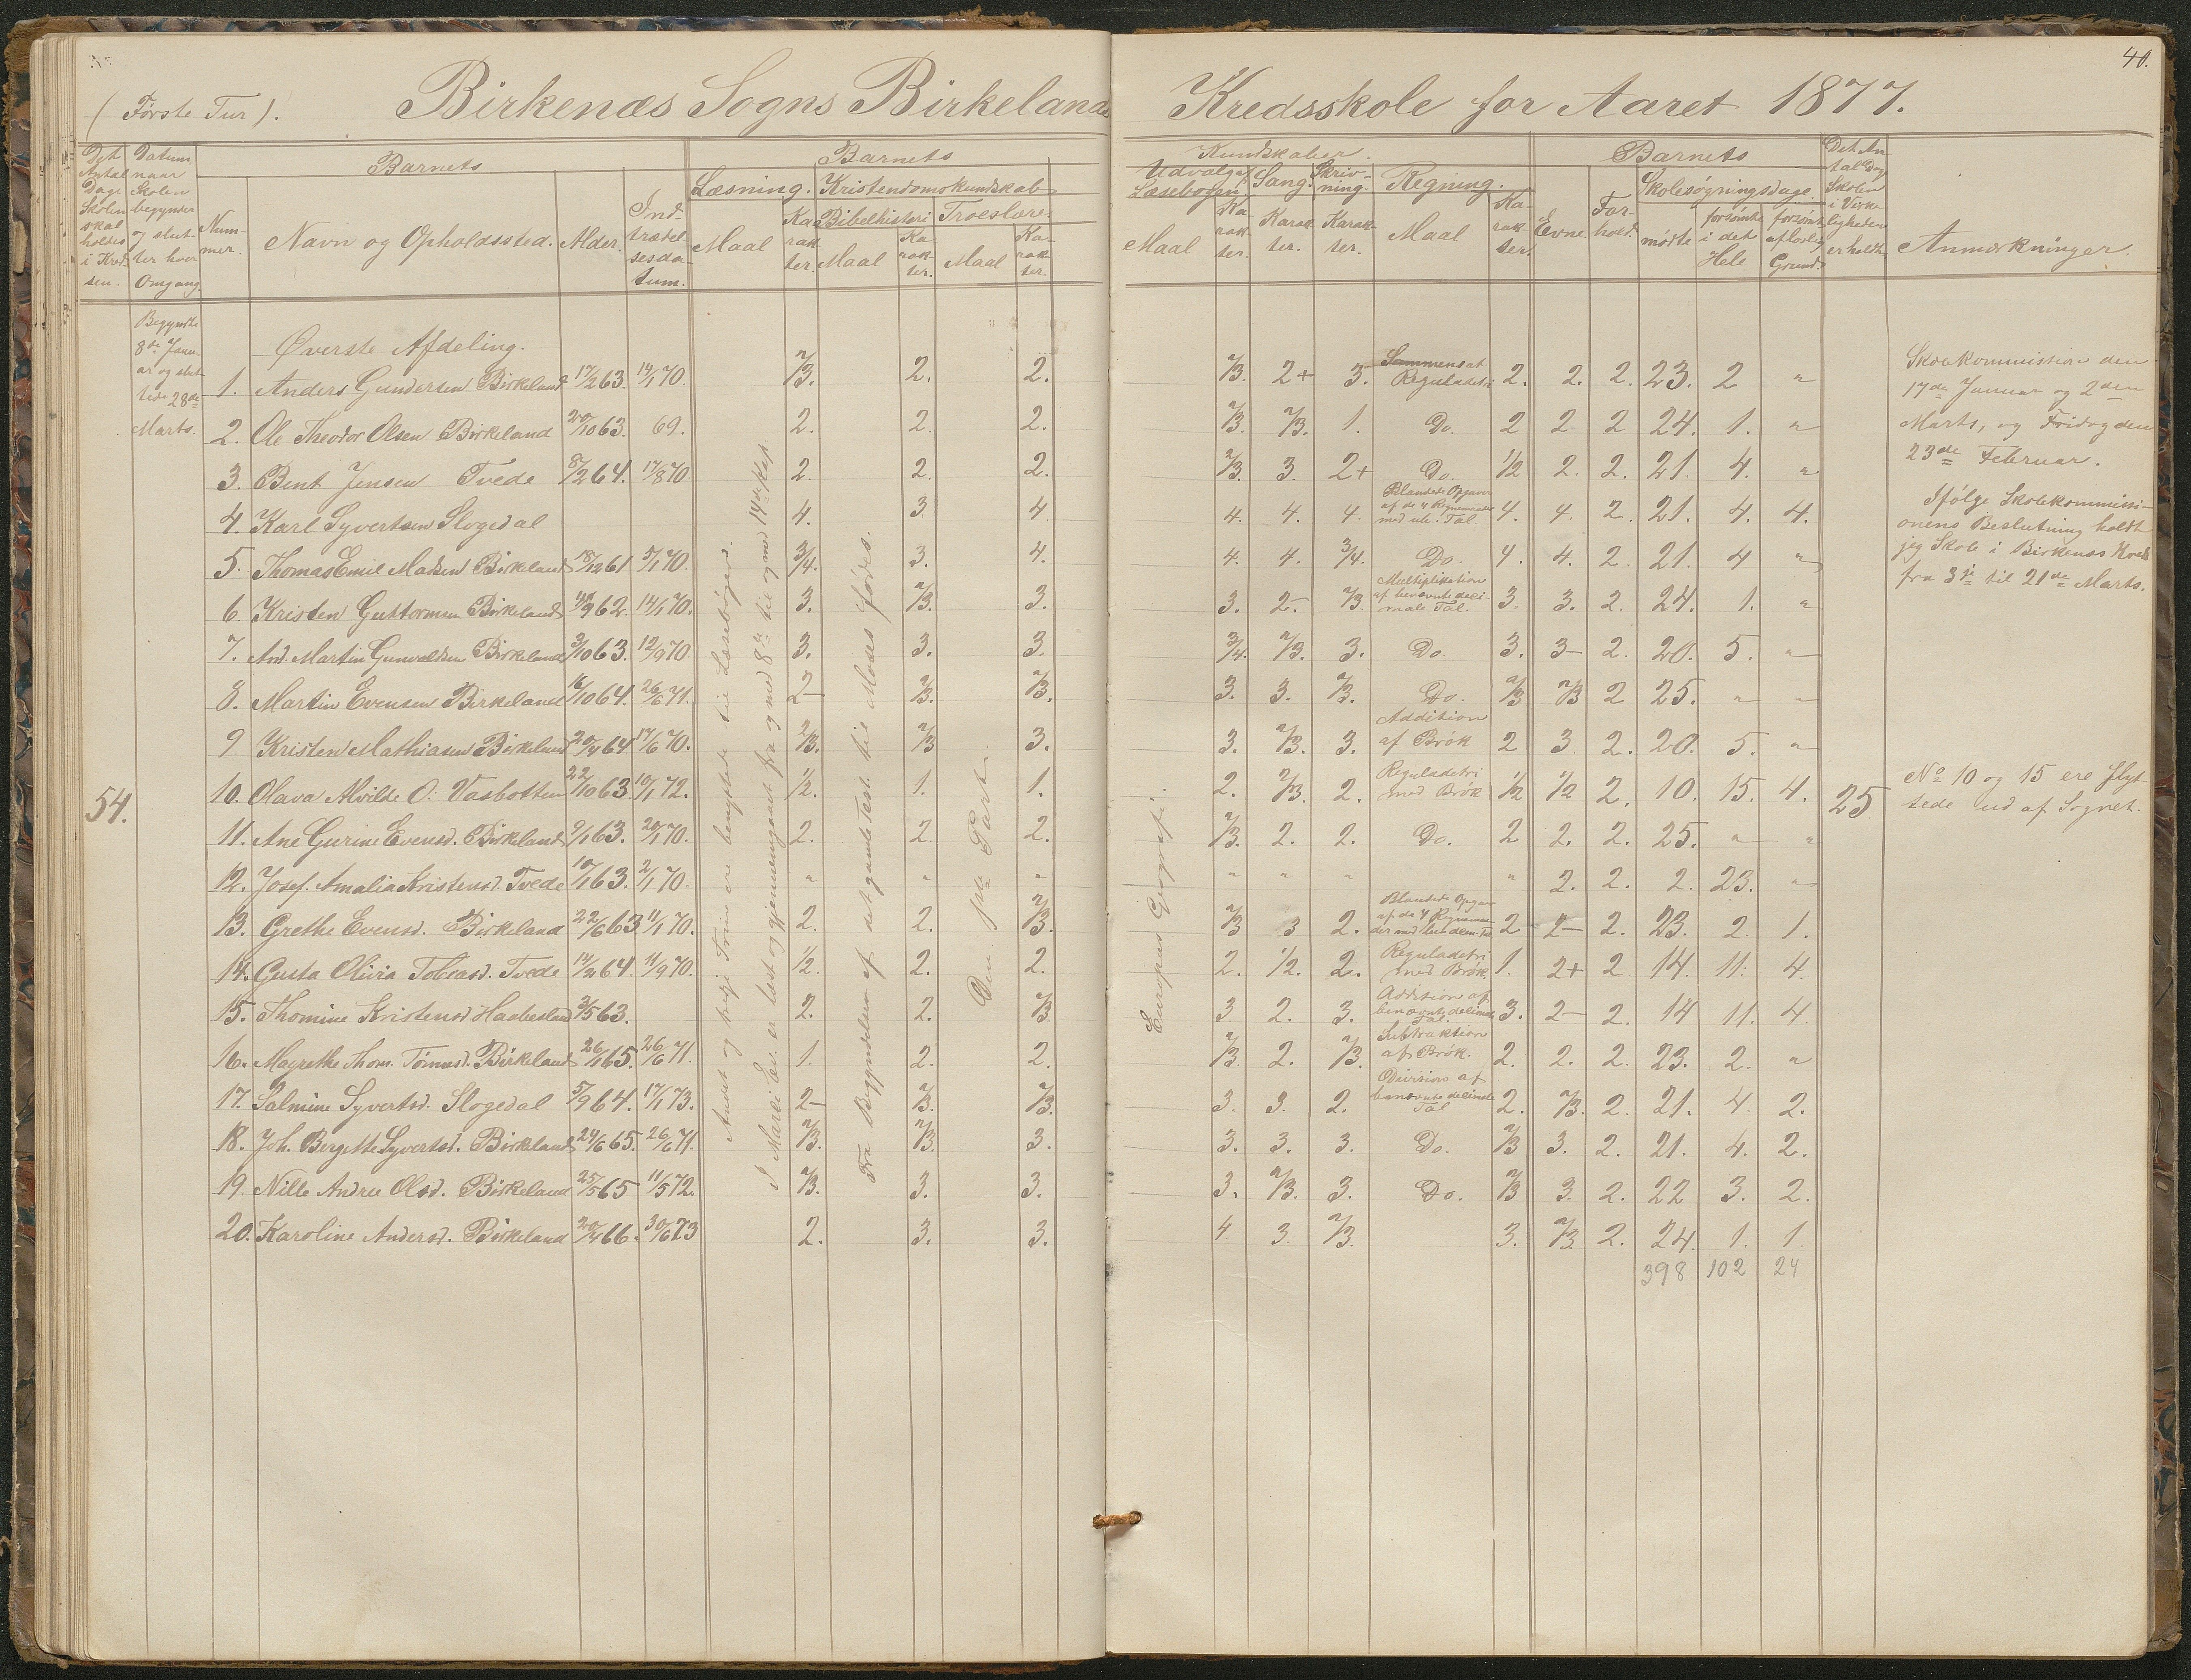 40.
(Første Tur). Birkenæs Sogns Birkelands Kredsskole for Aaret 1877.
Det Antal Dage Skolen skal holdes i Kredsen.
Datum naar Skolen begynder og slutter hver Omgang.
Barnets
Nummer.
Navn og Opholdssted.
Alder.
Indtrædelsesdatum.
Barnets Kundskaber.
Læsning.
Maal
Karakter.
Kristendomskundskab
Bibelhistorie
Maal
Karakter.
Troeslære.
Maal
Karakter.
Udvalgt Læsebogen.
Maal
Karakter.
Sang.
Karakter.
Skrivning.
Karakter.
Regning.
Maal
Karakter.
Barnets
Evne.
Forhold.
Skolesøgningsdage.
mødte
forsømte i det Hele
forsømt af lovlig Grund.
Det Antal Dage Skolen i Virkeligheden er holdt.
Anmærkninger.
Begyndte
8de Janu-
ar og slut-
tede 28de
Marts.
54.
Øverste Afdeling.
1. Anders Gundersen Birkeland 17/2 63. 14/1 70. 2/3. 2. 2. 2/3. 2+ 3. Sammensat Reguladetri 2. 2. 2. 23. 2 "
2. Ole Theodor Olsen Birkeland 20/10 63. 69. 2. 2. 2. 2/3. 2/3. 1. Do. 2 2 2 24. 1. "
3. Bent Jensen Tvede 8/2 64. 17/8 70 2. 2. 2. 2/3. 3. 2+ Do. 1/2 2. 2. 21. 4. "
4. Karl Syvertsen Slogedal 4. 3 4. 4. 4. 4. Blandede Opgaver af de 4 Regnemaader med ube. Tal 4. 4. 2. 21. 4. 4.
5. Thomas Emil Madsen Birkeland 18/12 61 5/1 70. 3/4. 3. 4. 4. 4. 3/4. Do. 4. 4. 2. 21. 4 "
6. Kristen Guttormsen Birkeland 9 62. 14/1 70. 3. 2/3. 3. 3. 2- 2/3. Multiplikation af benævnte decimale Tal. 3. 3. 2. 24. 1. "
7. And. Martin Gunvaldsen Birkeland 3/10 63. 12/9 70 3. 3. 3. 3/4. 2/3. 3. Do. 3. 3- 2. 20. 5. "
8. Martin Evensen Birkeland 16/10 64. 26/6 71. 2- 2/3. 2/3. 3. 3. 2/3. Do. 2/3 2/3 2 25. " "
9 Kristen Mathiasen Birkeland 20/4 64 17/6 70. 2/3. 2/3 3. 3. 2/3. 3. Addition af Brøk 2 3 2. 20. 5. "
10. Olava Alvilde O. Vasbotten 22/10 63. 10/1 72. 1/2. 1. 1. 2. 2/3. 2. Reguladetri med Brøk 1/2 1/2 2. 10. 15. 4. 25
11. Ane Gurine Evensd. Birkeland 9/1 63. 20/1 70. 2. 2. 2. 2/3. 2. 2. Do. 2 2. 2. 25. " "
12. Josef. Amalia Kristensd. Tvede 10/1 63. 2/1 70. " " " " " " " 2. 2. 2. 23. "
13. Grethe Evensd. Birkeland 22/6 63. 11/1 70. 2. 2. 2/3. 2/3 3 2. Blandede Opgaver af de 4 Regnemaader 2 2- 2. 23. 2 1.
14. Gusta Olivia Tobiasd. Tvede 11/2 64. 11/9 70. 1/2. 2. 2. 2. 1/2. 2. Reguladetri med Brøk. 1. 2+ 2 14. 11. 4.
15. Thomine Kristensd. Haabesland 2/5 63. 2. 2. 2/3 3 2. 3. Addition af benævnte decimale Tal. 3. 2- 2. 14 11. 4.
16. Magrethe Thom. Tømesd. Birkeland 26/1 65. 26/6 71. 1. 2. 2. 2/3. 2. 2/3 Subtraktion af Brøk. 2. 2. 2. 23. 2. "
17. Salmine Syvertsd. Slogedal 5/9 64. 17/1 73. 2- 2/3. 2/3. 3. 3. 2. Division af benævnte decimale Tal 2. 2/3. 2. 21. 4. 2.
18. Joh. Bergitte Syvertsd. Birkeland 24/6 65. 26/6 71. 2/3. 2/3. 3. 3. 3. 3 Do. 2/3 3. 2. 21. 4. 2.
19. Nille Andrea Olsd. Birkeland 25/5 65 11/5 72. 2/3. 3. 3. 3. 2/3. 3. Do. 2/3 3. 2. 22 3. 2.
20. Karoline Andersd. Birkeland 20/4 66. 30/6 73 2. 3. 3. 4. 3. 2/3. 3. 2/3 2. 24. 1. 1.
398 102 24
Andet og tredje Trin ere benyttede til Læsebøger.
I Marci Ev. er læst og gjennemgaaet fra og med 8de til og med 14de Kap.
Fra Begyndelsen af det gamle Test. til Moses fødes.
Den 1ste Part.
Europas Geografi.
Skolekommission den
17de Januar og 2den
Marts, og Fridag den
23de Februar.
Ifølge Skolekommissi-
onens Beslutning holdt
jeg Skole i Birkenæs Kreds
fra 3je til 21de Marts.
No 10 og 15 ere flyt-
tede ud af Sognet.